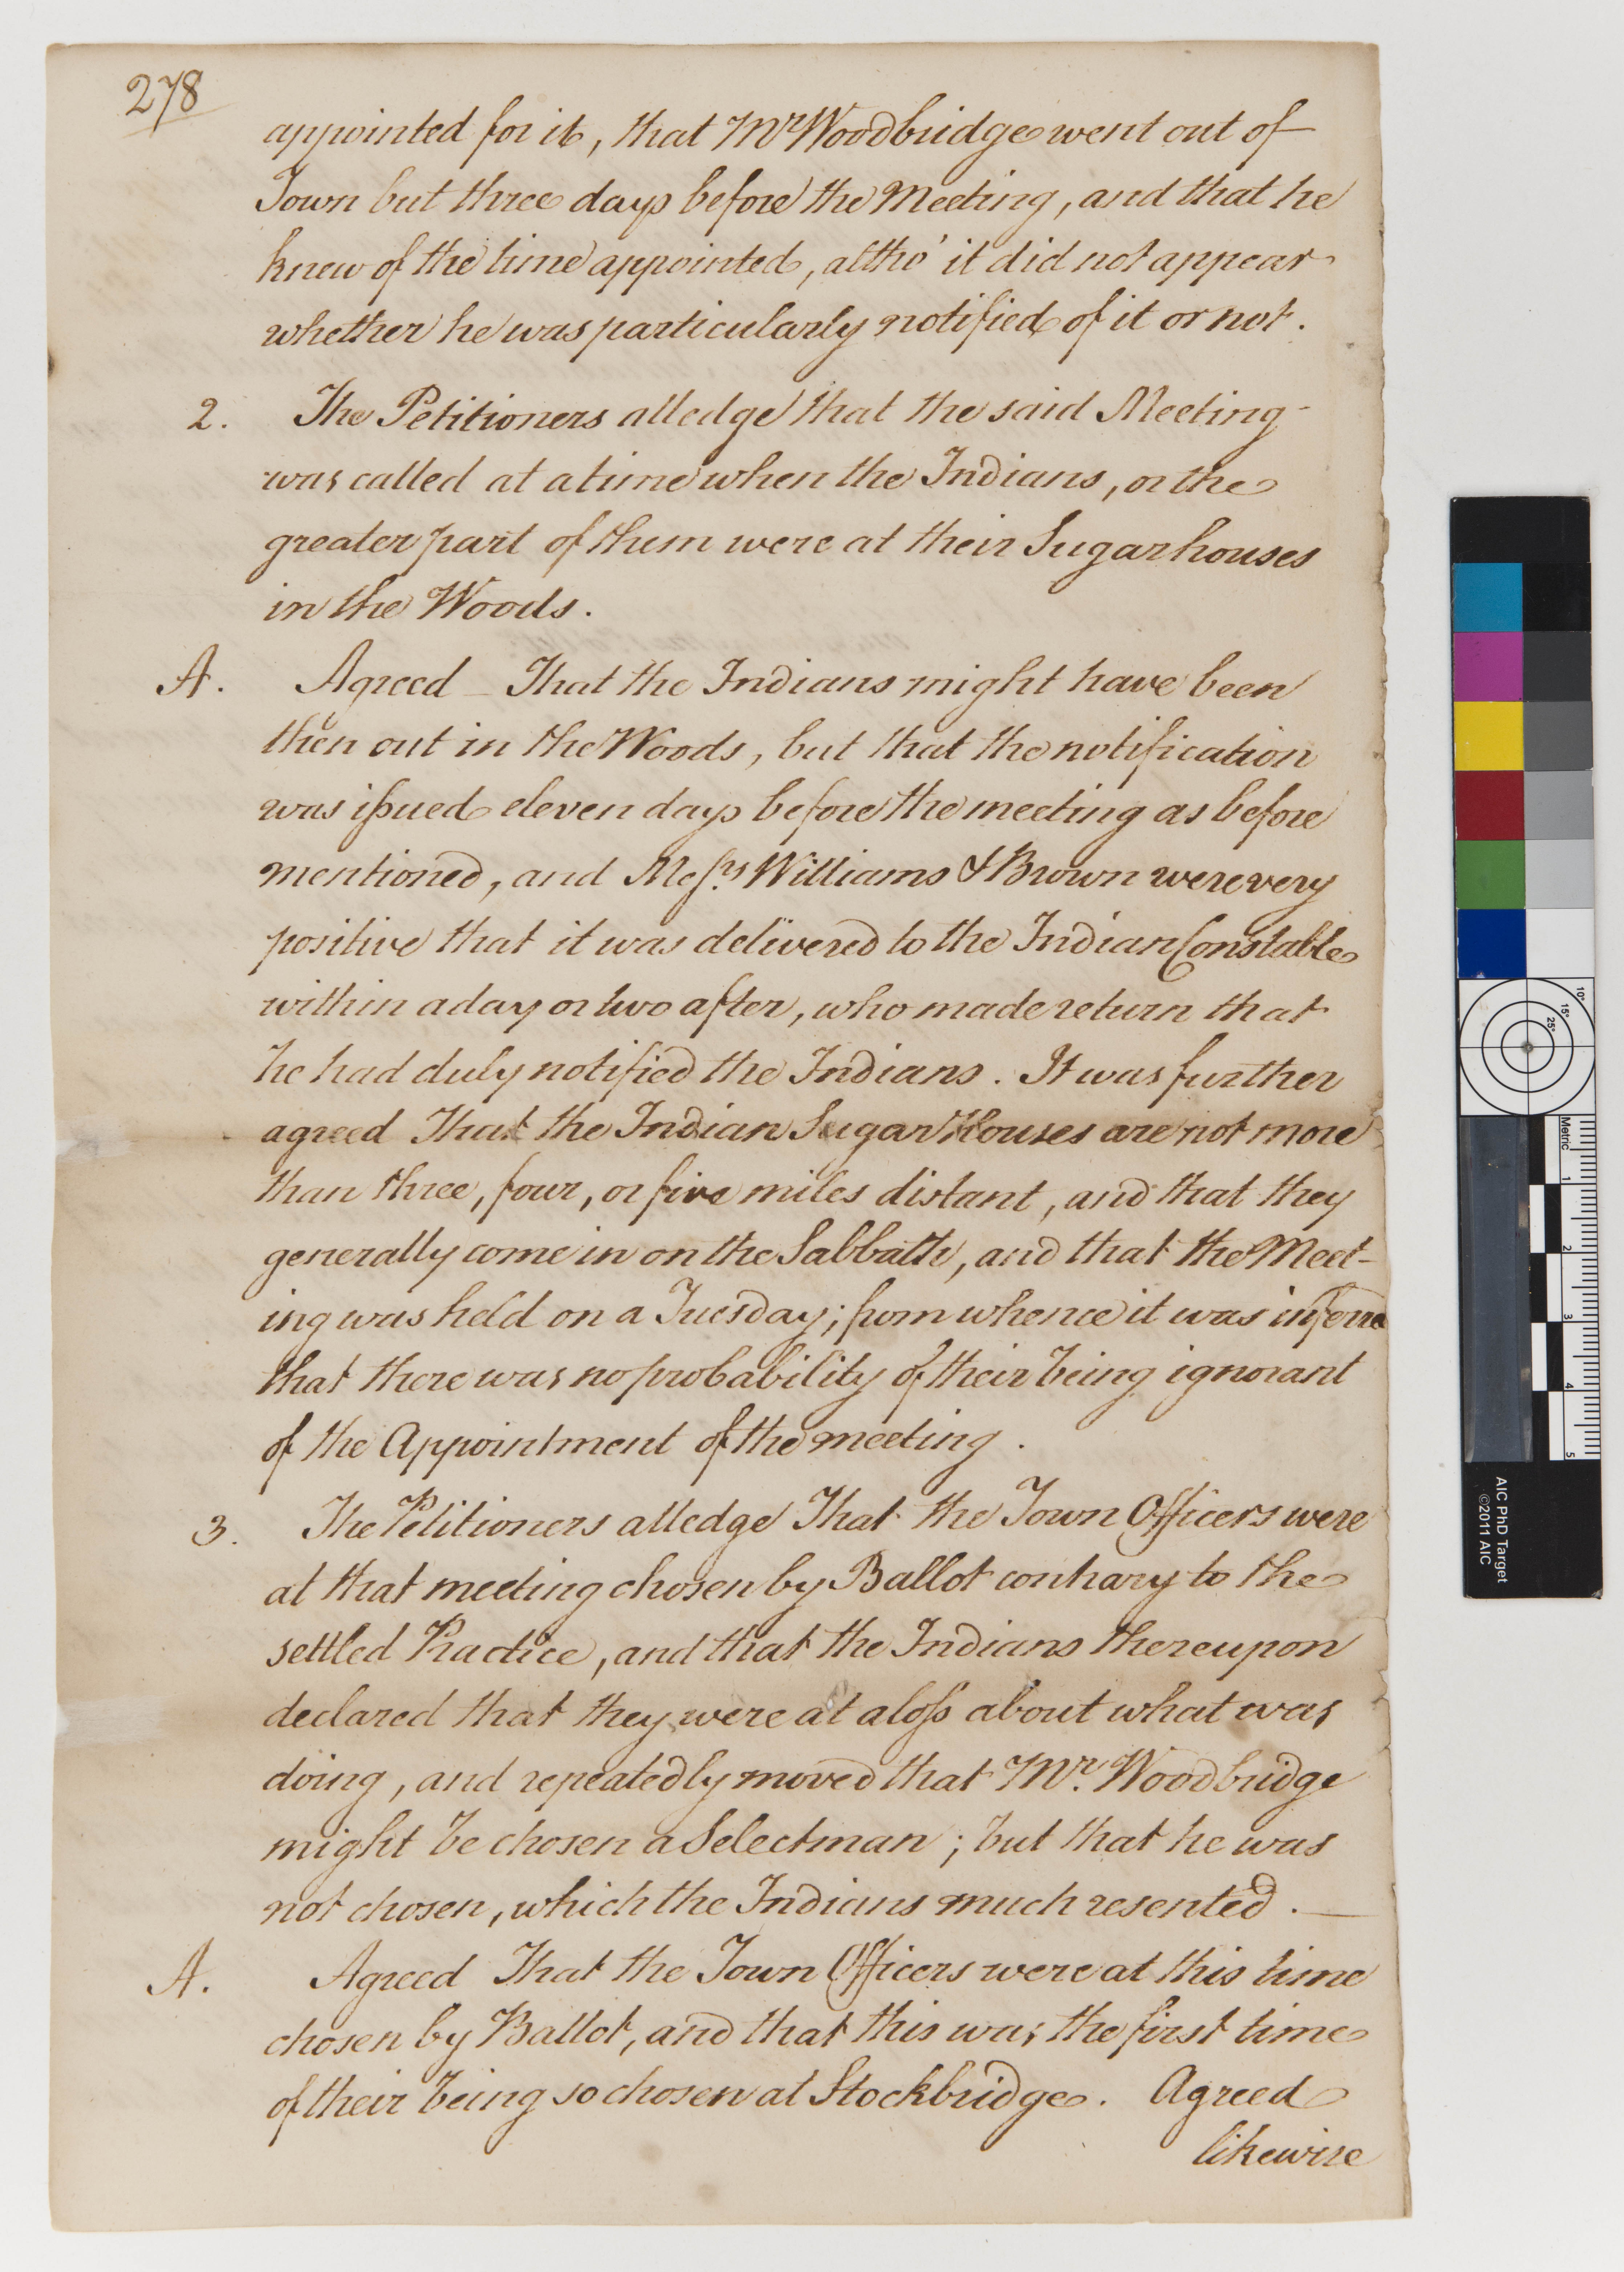 278
appointed for it, that Mr Woodbridge went out of
Town but three days before the Meeting, and that he
knew of the time appointed, altho' it did not appear
whether he was particularly notified of it or not.
2. The Petitioners alledge that the said Meeting
was called at a time when the Indians, or the
greater part of them were at their Sugarhouses
in the Woods.
A. Agreed - That the Indians might have been
then out in the Woods, but that the notification
was issued eleven days before the meeting as before
mentioned, and Messrs Williams & Brown were very
positive that it was delivered to the Indian Constable
within a day or two after, who made return that
he had duly notified the Indians. It was further
agreed That the Indian Sugar Houses are not more
than three, four, or five miles distant, and that they
generally come in on the Sabbath, and that the Meet-
ing was held on a Tuesday; from whence it was inferre
that there was no probability of their being ignorant
of the Appointment of the meeting.
3. The Petitioners alledge That the Town Officers were
at that meeting chosen by Ballot contrary to the
settled Practice, and that the Indians thereupon
declared that they were at a loss about what was
doing, and repeatedly moved that Mr. Woodbridge
might be chosen a Selectman; but that he was
not chosen, which the Indians much resented.
A. Agreed That the Town Officers were at this time
chosen by Ballot, and that this was the first time
of their being so chosen at Stockbridge. Agreed
likewise
10°
15°
25°
Metric
1
2
3
4
5
AIC PhD Target
©2011 AIC